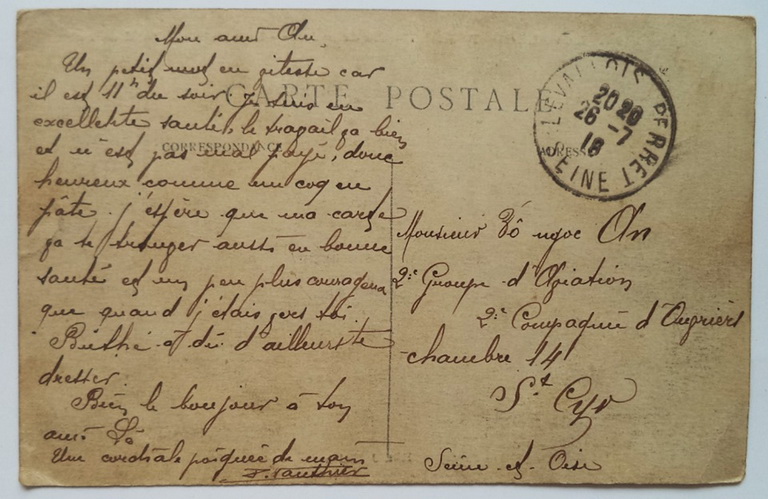 Mon ami An,
Un petit mot en vitesse car
il est 11h du soir, je suis en
excellente santé, le travail ça bien
et n'est pas mal payé, donc
heureux comme un coq en
pâte. j'espère que ma carte
ça te trouver aussi en bonne
santé et un peu plus courageux
que quand j'étais vers toi.
a dû d'ailleurs te
dresser.
Bien le bonjour à ton
ami Lê
Une cordiale poignée de main
CARTE POSTALE
CORRESPONDANCE
ADRESSE
LEVALLOIS PERRET
20 20
26 - 7
18
SEINE
Monsieur Võ ngoc An
2e Groupe d'Aviation
2e Compagnie d'Ouvriers
chambre 14
St Cyr
Seine et Oise